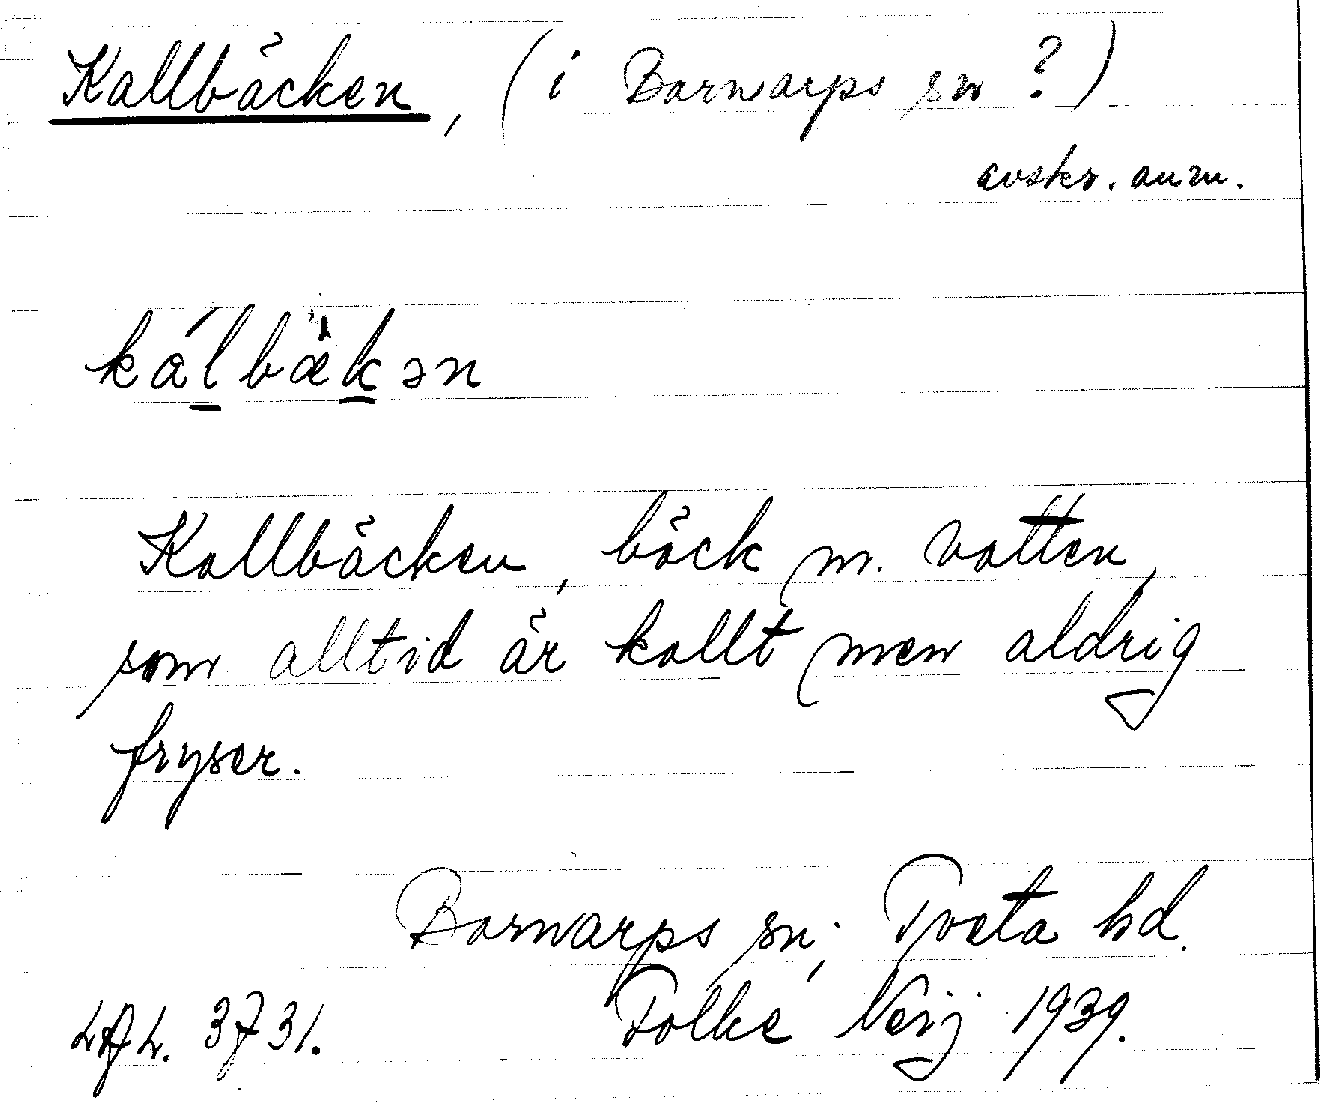 Kallbäcken, (i Barnarps sn ?)
avskr. anm.
kálbæ̀kən
Kallbäcken, bäck m. vatten,
som alltid är kallt men aldrig
fryser.
Barnarps sn; Tveta hd.
3731. Folke Neij 1939.